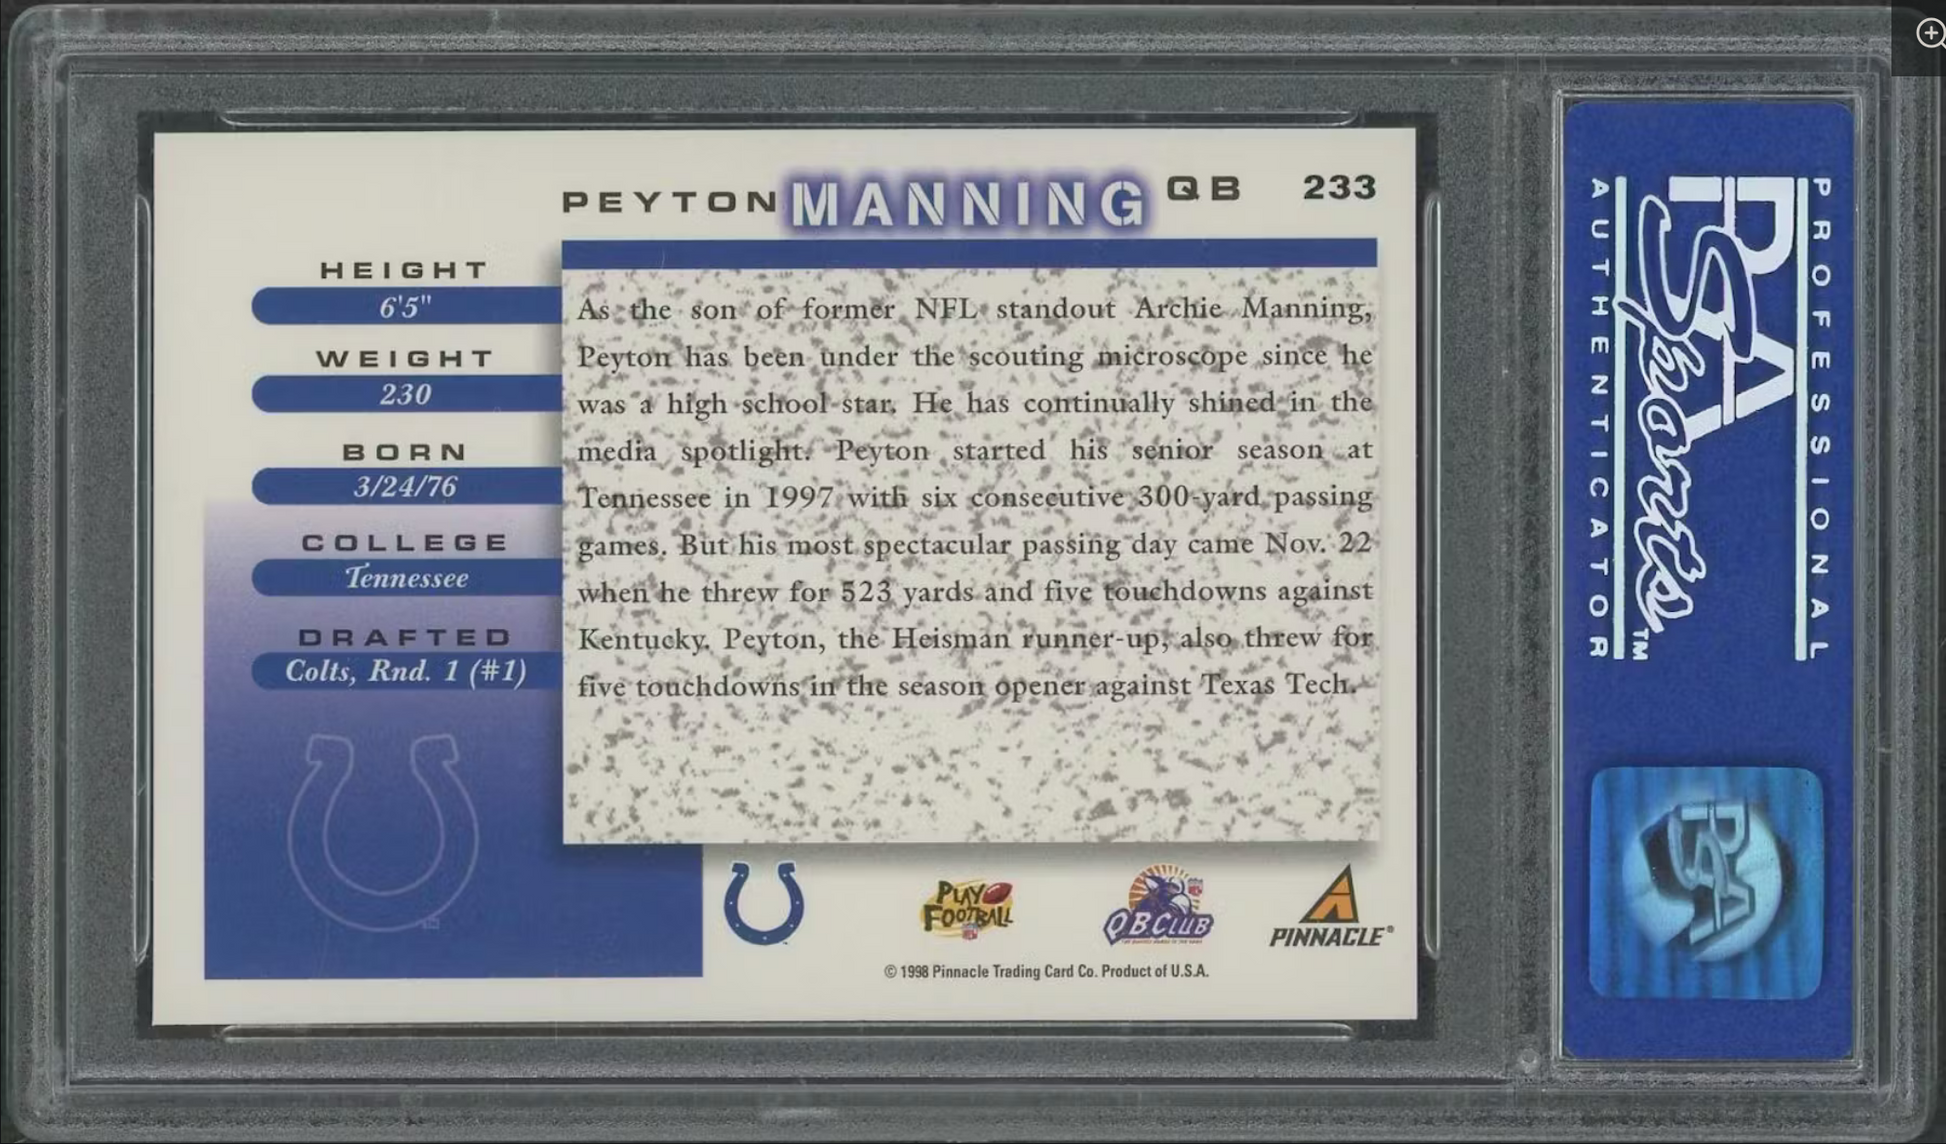 PEYTON MANNING QB 233
HEIGHT
6'5"
WEIGHT
230
BORN
3/24/76
COLLEGE
Tennessee
DRAFTED
Colts, Rnd. 1 (#1)
As the son of former NFL standout Archie Manning,
Peyton has been under the scouting microscope since he
was a high school star. He has continually shined in the
media spotlight. Peyton started his senior season at
Tennessee in 1997 with six consecutive 300-yard passing
games. But his most spectacular passing day came Nov. 22
when he threw for 523 yards and five touchdowns against
Kentucky. Peyton, the Heisman runner-up, also threw for
five touchdowns in the season opener against Texas Tech.
PLAY
FOOTBALL
QB CLUB
PINNACLE®
© 1998 Pinnacle Trading Card Co. Product of U.S.A.
PROFESSIONAL
PSA
Sports™
AUTHENTICATOR
PSA